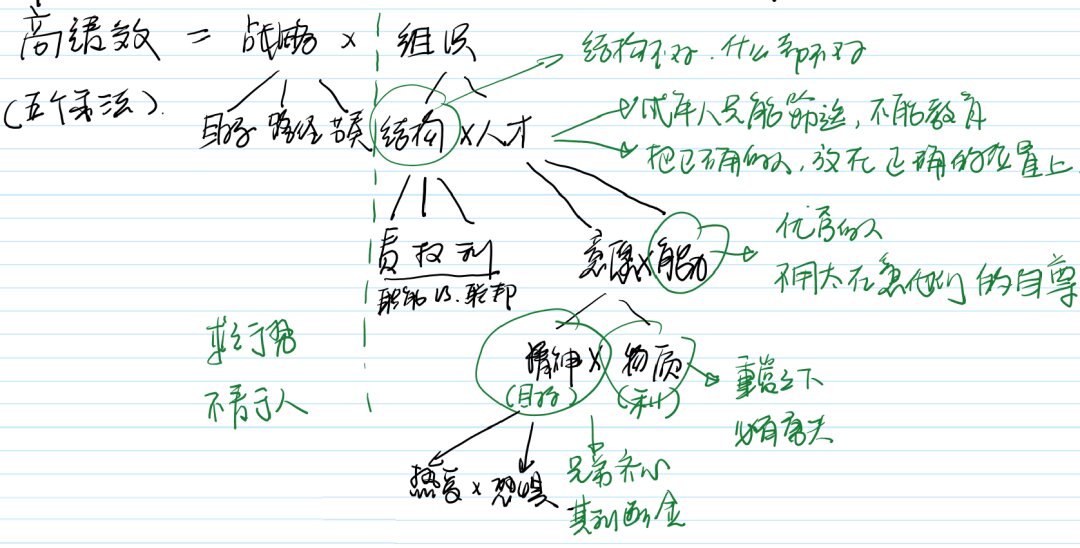 高绩效 = 战略 × 组织
(五个乘法).
目标 路径 结构 × 人才
结构不对.什么都不对
成年人只能筛选,不能教育
把正确的人,放在正确的位置上.
责 权 利
职能 VS. 联邦
意愿×能力
优秀的人
不用太在意他们的自尊
求之于势
不责于人
精神 × 物质
(目标) (利)
重赏之下
必有勇夫
热爱 × 恐惧
兄弟齐心
其利断金